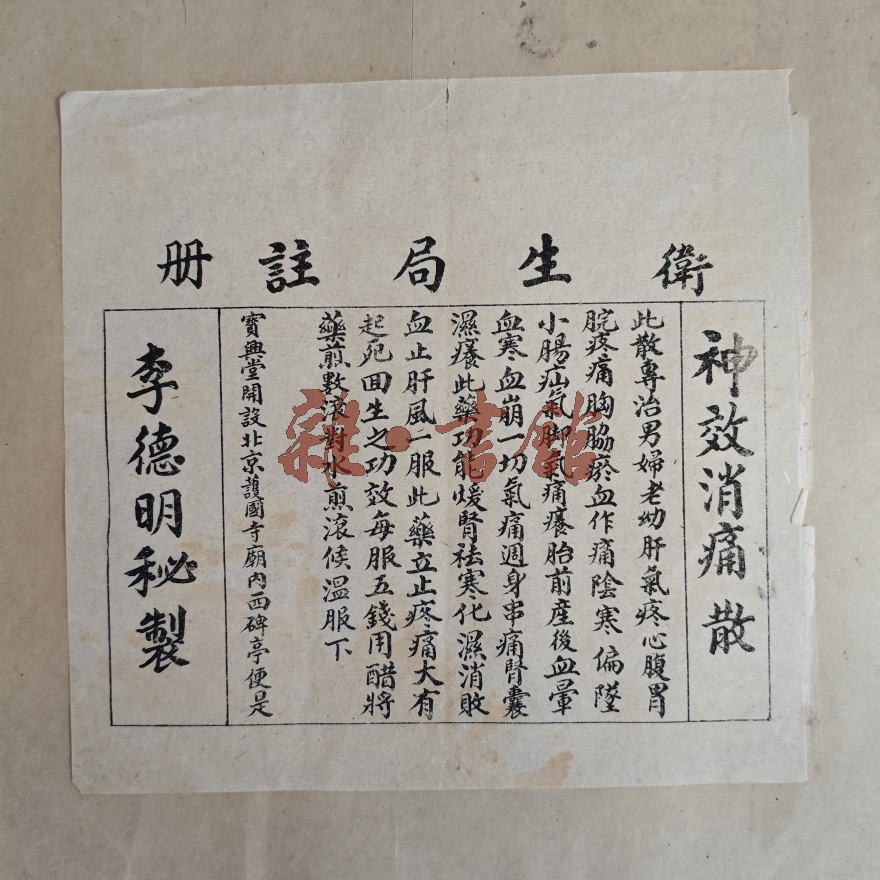 衛生局註册
神效消痛散
此散專治男婦老幼肝氣疼心腹胃
脘疼痛胸脇瘀血作痛陰寒偏墜
小腸疝氣脚氣痛癢胎前産後血暈
血寒血崩一切氣痛週身串痛腎囊
濕癢此藥功能煖腎祛寒化濕消散
血止肝風一服此藥立止疼痛大有
起死回生之功效每服五錢用醋將
藥煎數滚對水煎滚候温服下
寳興堂開設北京護國寺廟内西碑亭便是
李德明秘製
雜·書館